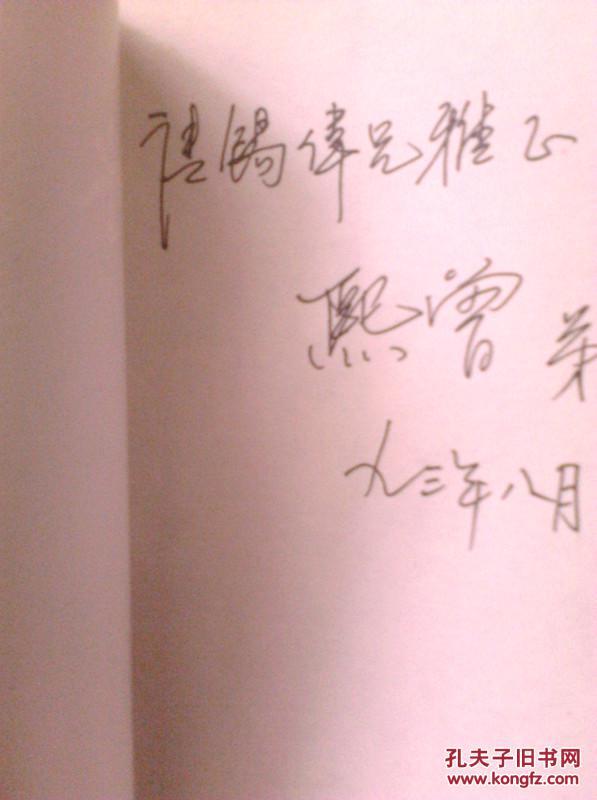 请锡偉兄雅正
熙曾 弟
九三年八月
孔夫子旧书网
www.kongfz.com